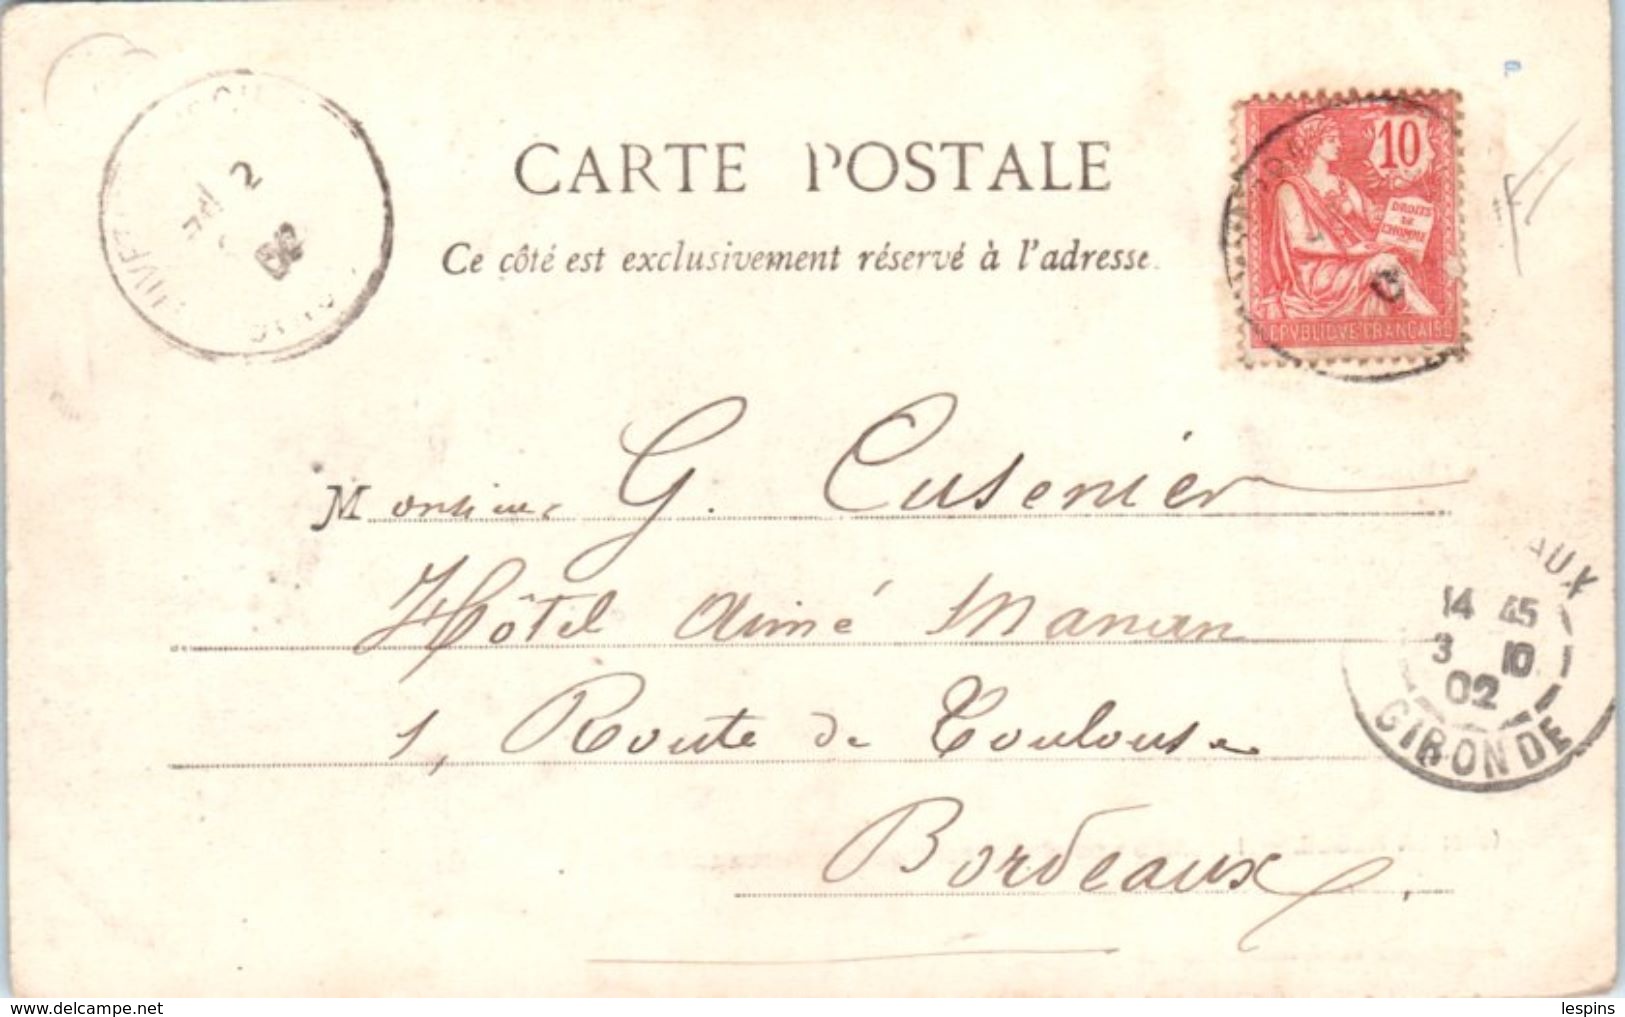 CARTE POSTALE
Ce côté est exclusivement réservé à l'adresse.
10
DROITS
DE
L'HOMME
REPVBLIQVE FRANÇAISE
2
02
Monsieur G. Cusenier
Hôtel Aimé Manan
1, Route de Toulouse
Bordeaux
AUX
14 45
3 10
02
GIRONDE
lespins